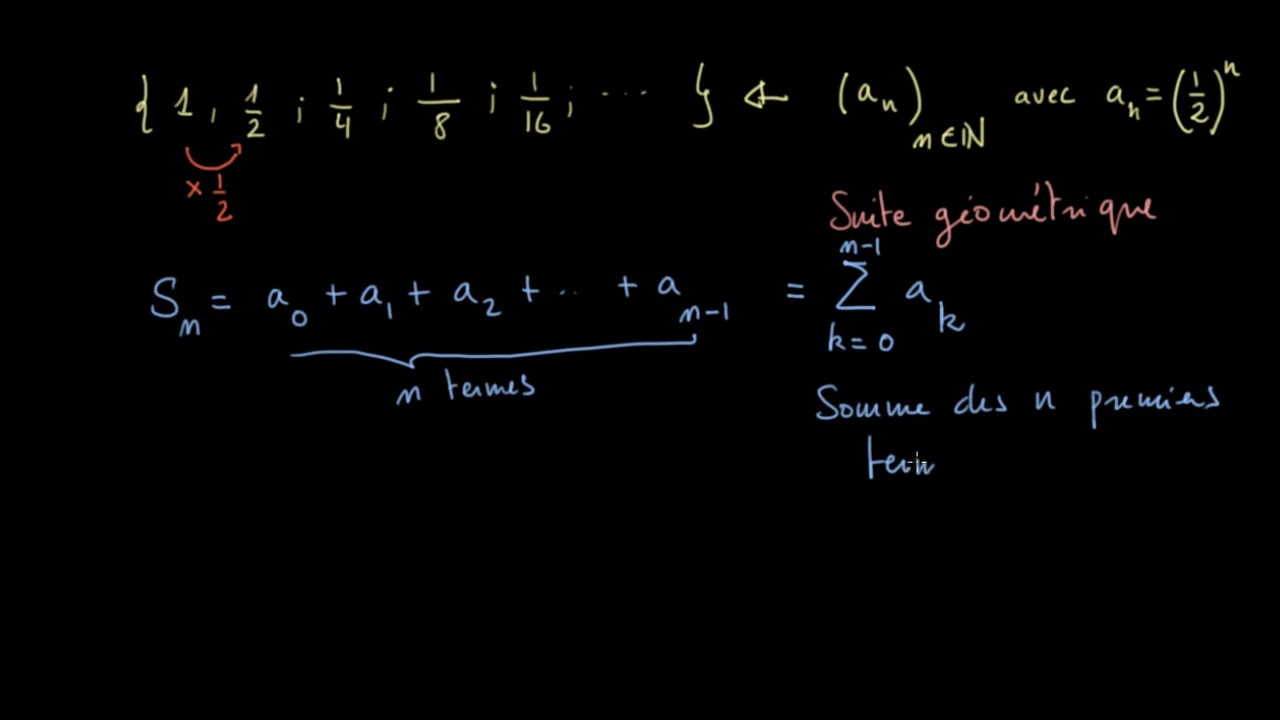 { 1, 1/2 ; 1/4 ; 1/8 ; 1/16 ; ... } ← (aₙ)ₙ∈ℕ avec aₙ = (1/2)ⁿ
× 1/2
Suite géométrique
Sₙ = a₀ + a₁ + a₂ + ... + aₙ₋₁ = ∑_{k=0}^{n-1} a_k
n termes
Somme des n premiers